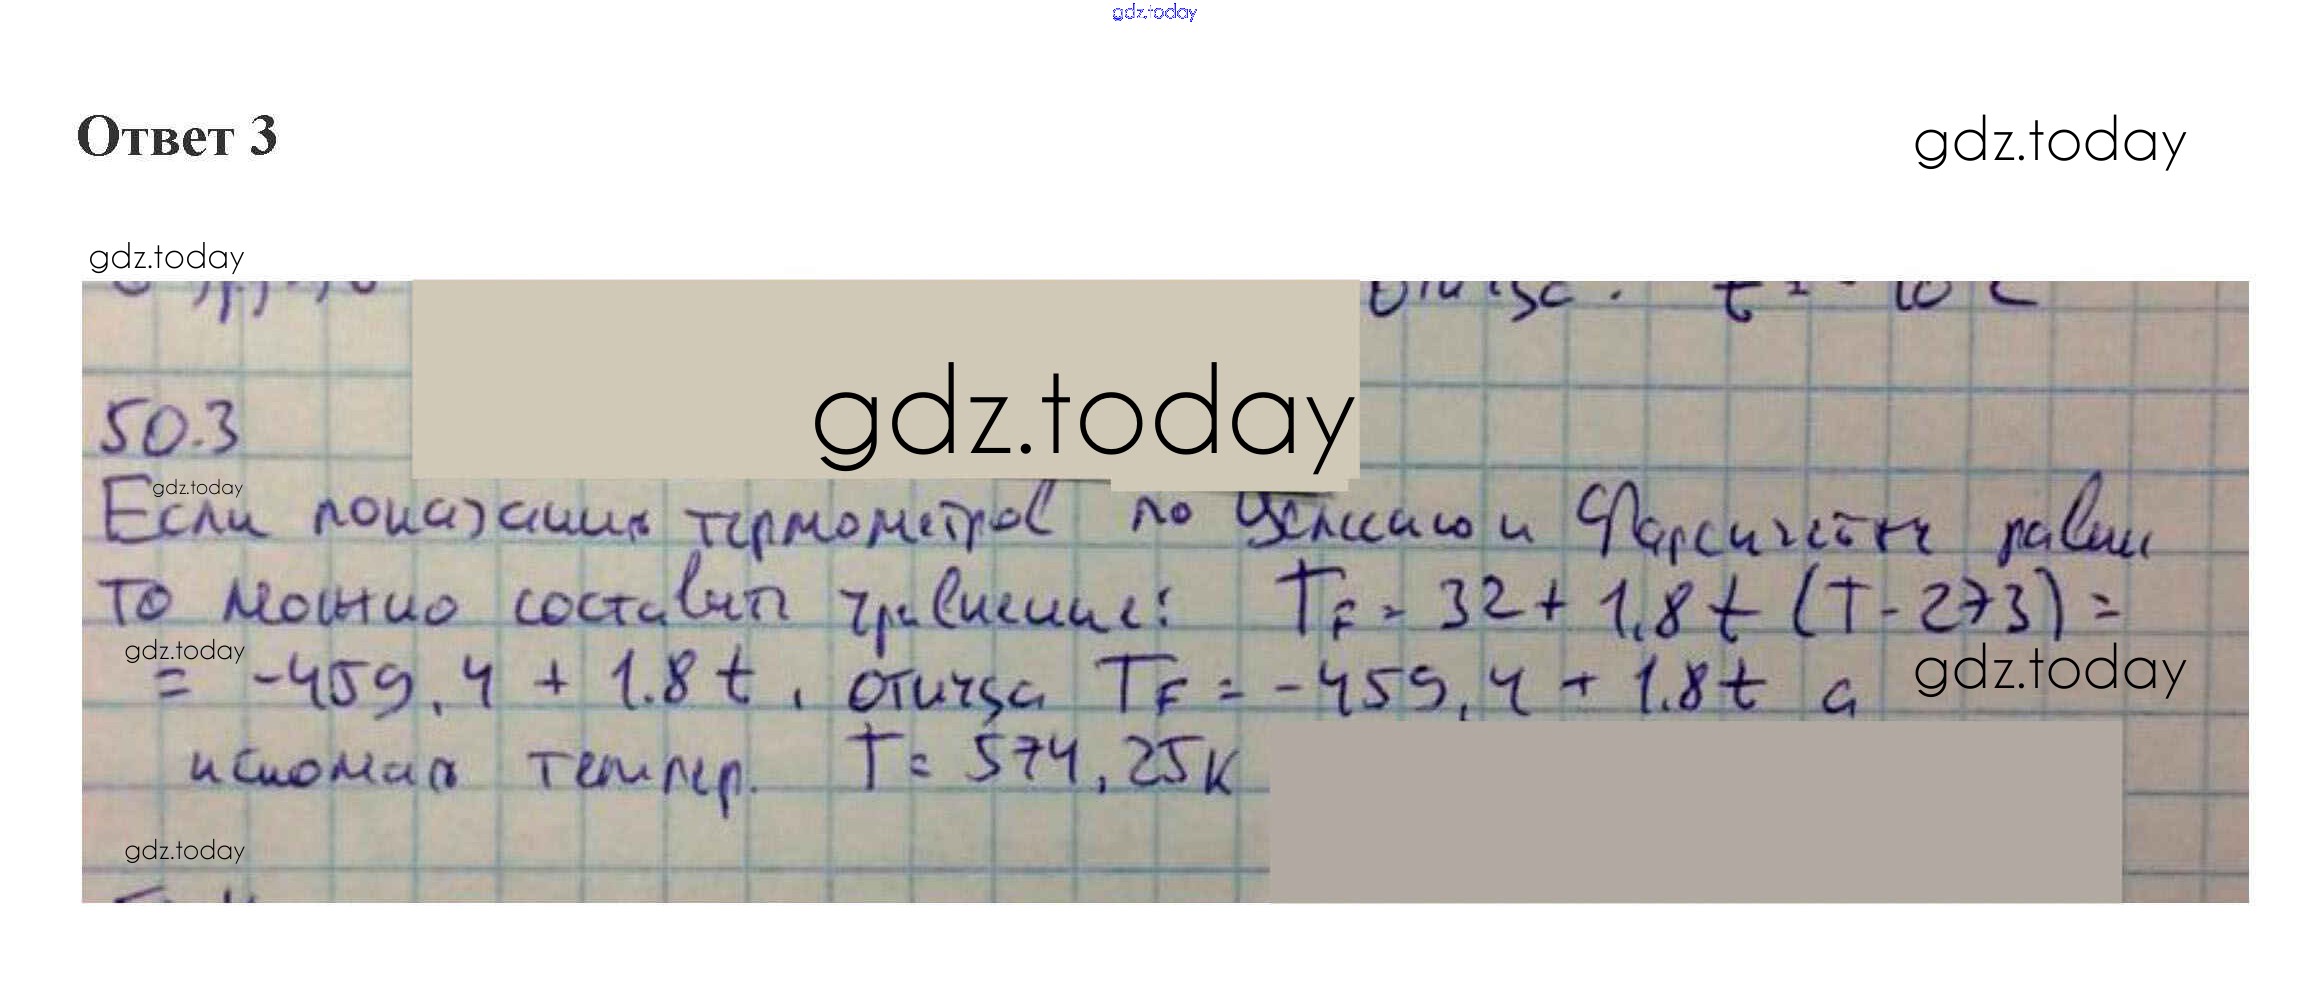 gdz.today
Ответ 3
gdz.today
gdz.today
gdz.today
50.3
gdz.today
Если показания термометров по Цельсию и Фаренгейта равны
то можно составить уравнение: T_F = 32 + 1,8 t (T - 273) =
gdz.today
= -459,4 + 1.8 t, откуда T_F = -459,4 + 1.8 t а
gdz.today
искомая темпер. T = 574,25 К
gdz.today